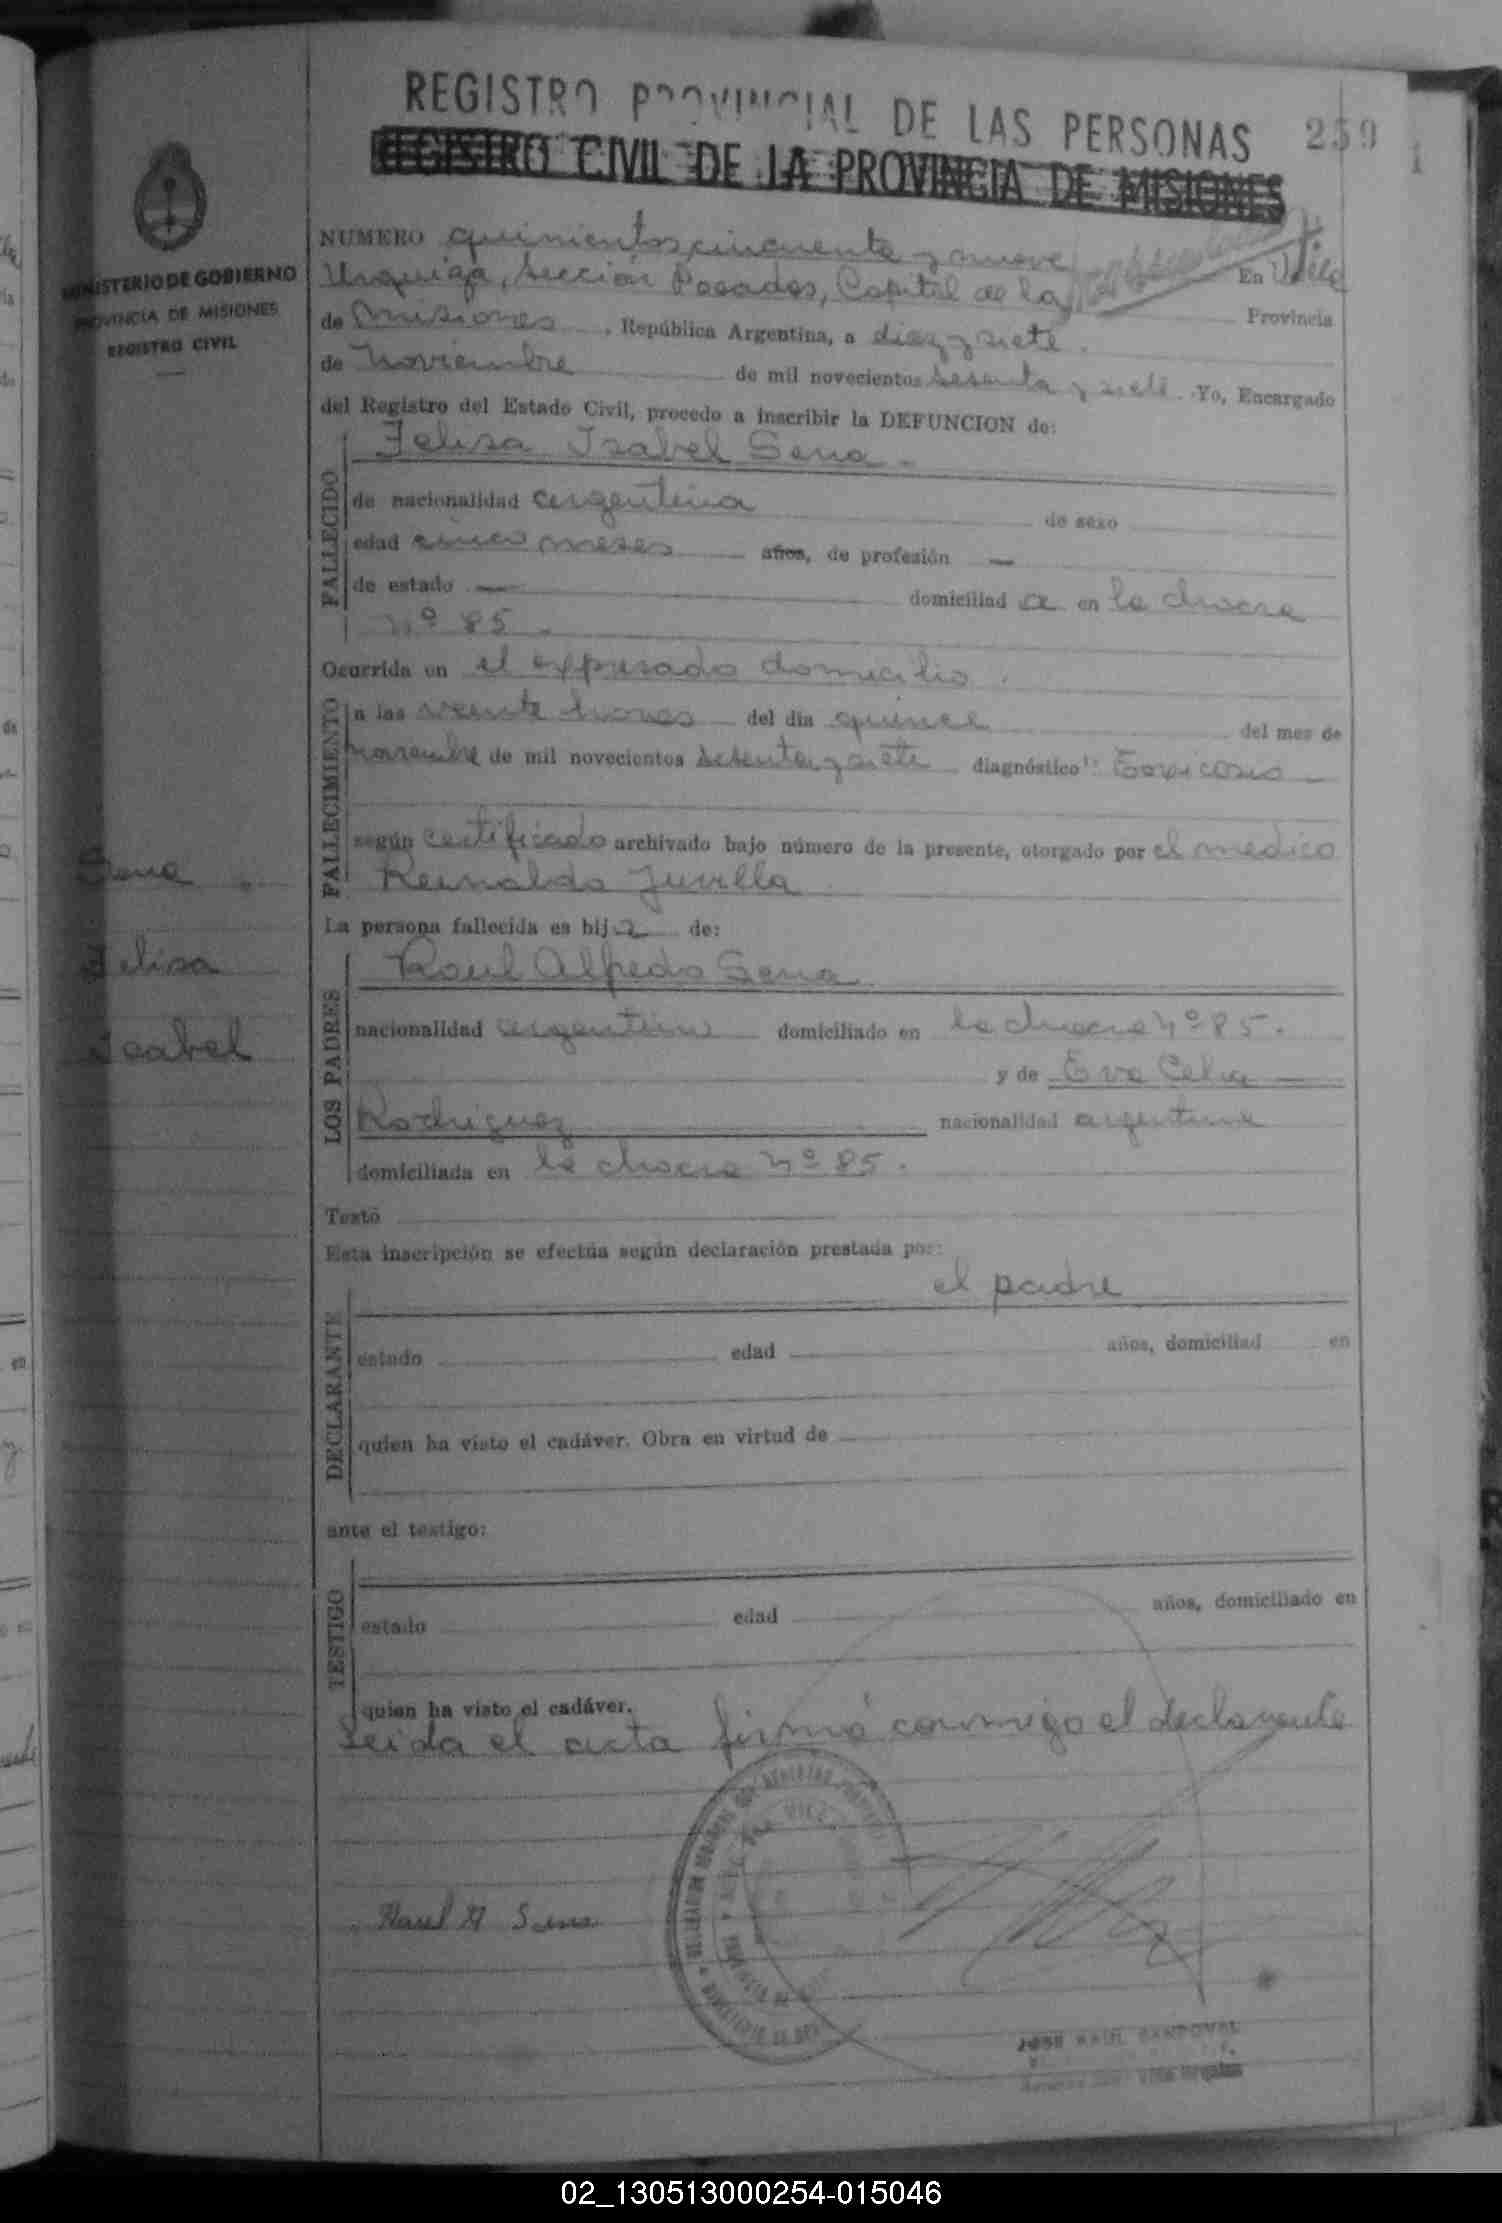 REGISTRO PROVINCIAL DE LAS PERSONAS 259
REGISTRO CIVIL DE LA PROVINCIA DE MISIONES
MINISTERIO DE GOBIERNO
PROVINCIA DE MISIONES
REGISTRO CIVIL
NUMERO quinientos cincuenta y nueve En Villa
Urquiza, Sección Posadas, Capital de la Provincia
de Misiones, República Argentina, a diez y siete
de Noviembre de mil novecientos sesenta y siete. Yo, Encargado
del Registro del Estado Civil, procedo a inscribir la DEFUNCION de:
FALLECIDO
Felisa Isabel Sena
de nacionalidad argentina de sexo
edad cinco meses años, de profesión —
de estado — domiciliad a en la chacra
nº 85.
Ocurrida en el expresado domicilio.
FALLECIMIENTO
a las veinte horas del día quince del mes de
noviembre de mil novecientos sesenta y siete diagnóstico: Toxicosis
según certificado archivado bajo número de la presente, otorgado por el medico
Reinaldo
La persona fallecida es hija de:
Sena
Felisa
Isabel
LOS PADRES
Raul Alfredo Sena
nacionalidad argentino domiciliado en la chacra nº 85.
y de Eva Celia
Rodriguez nacionalidad argentina
domiciliada en la chacra nº 85.
Testó
Esta inscripción se efectúa según declaración prestada por:
el padre
DECLARANTE
estado edad años, domiciliad en
quien ha visto el cadáver. Obra en virtud de
ante el testigo:
TESTIGO
estado edad años, domiciliado en
quien ha visto el cadáver.
Leida el acta firmó conmigo el declarante
Raul A Sena
JOSE RAUL SANDOVAL
02_130513000254-015046